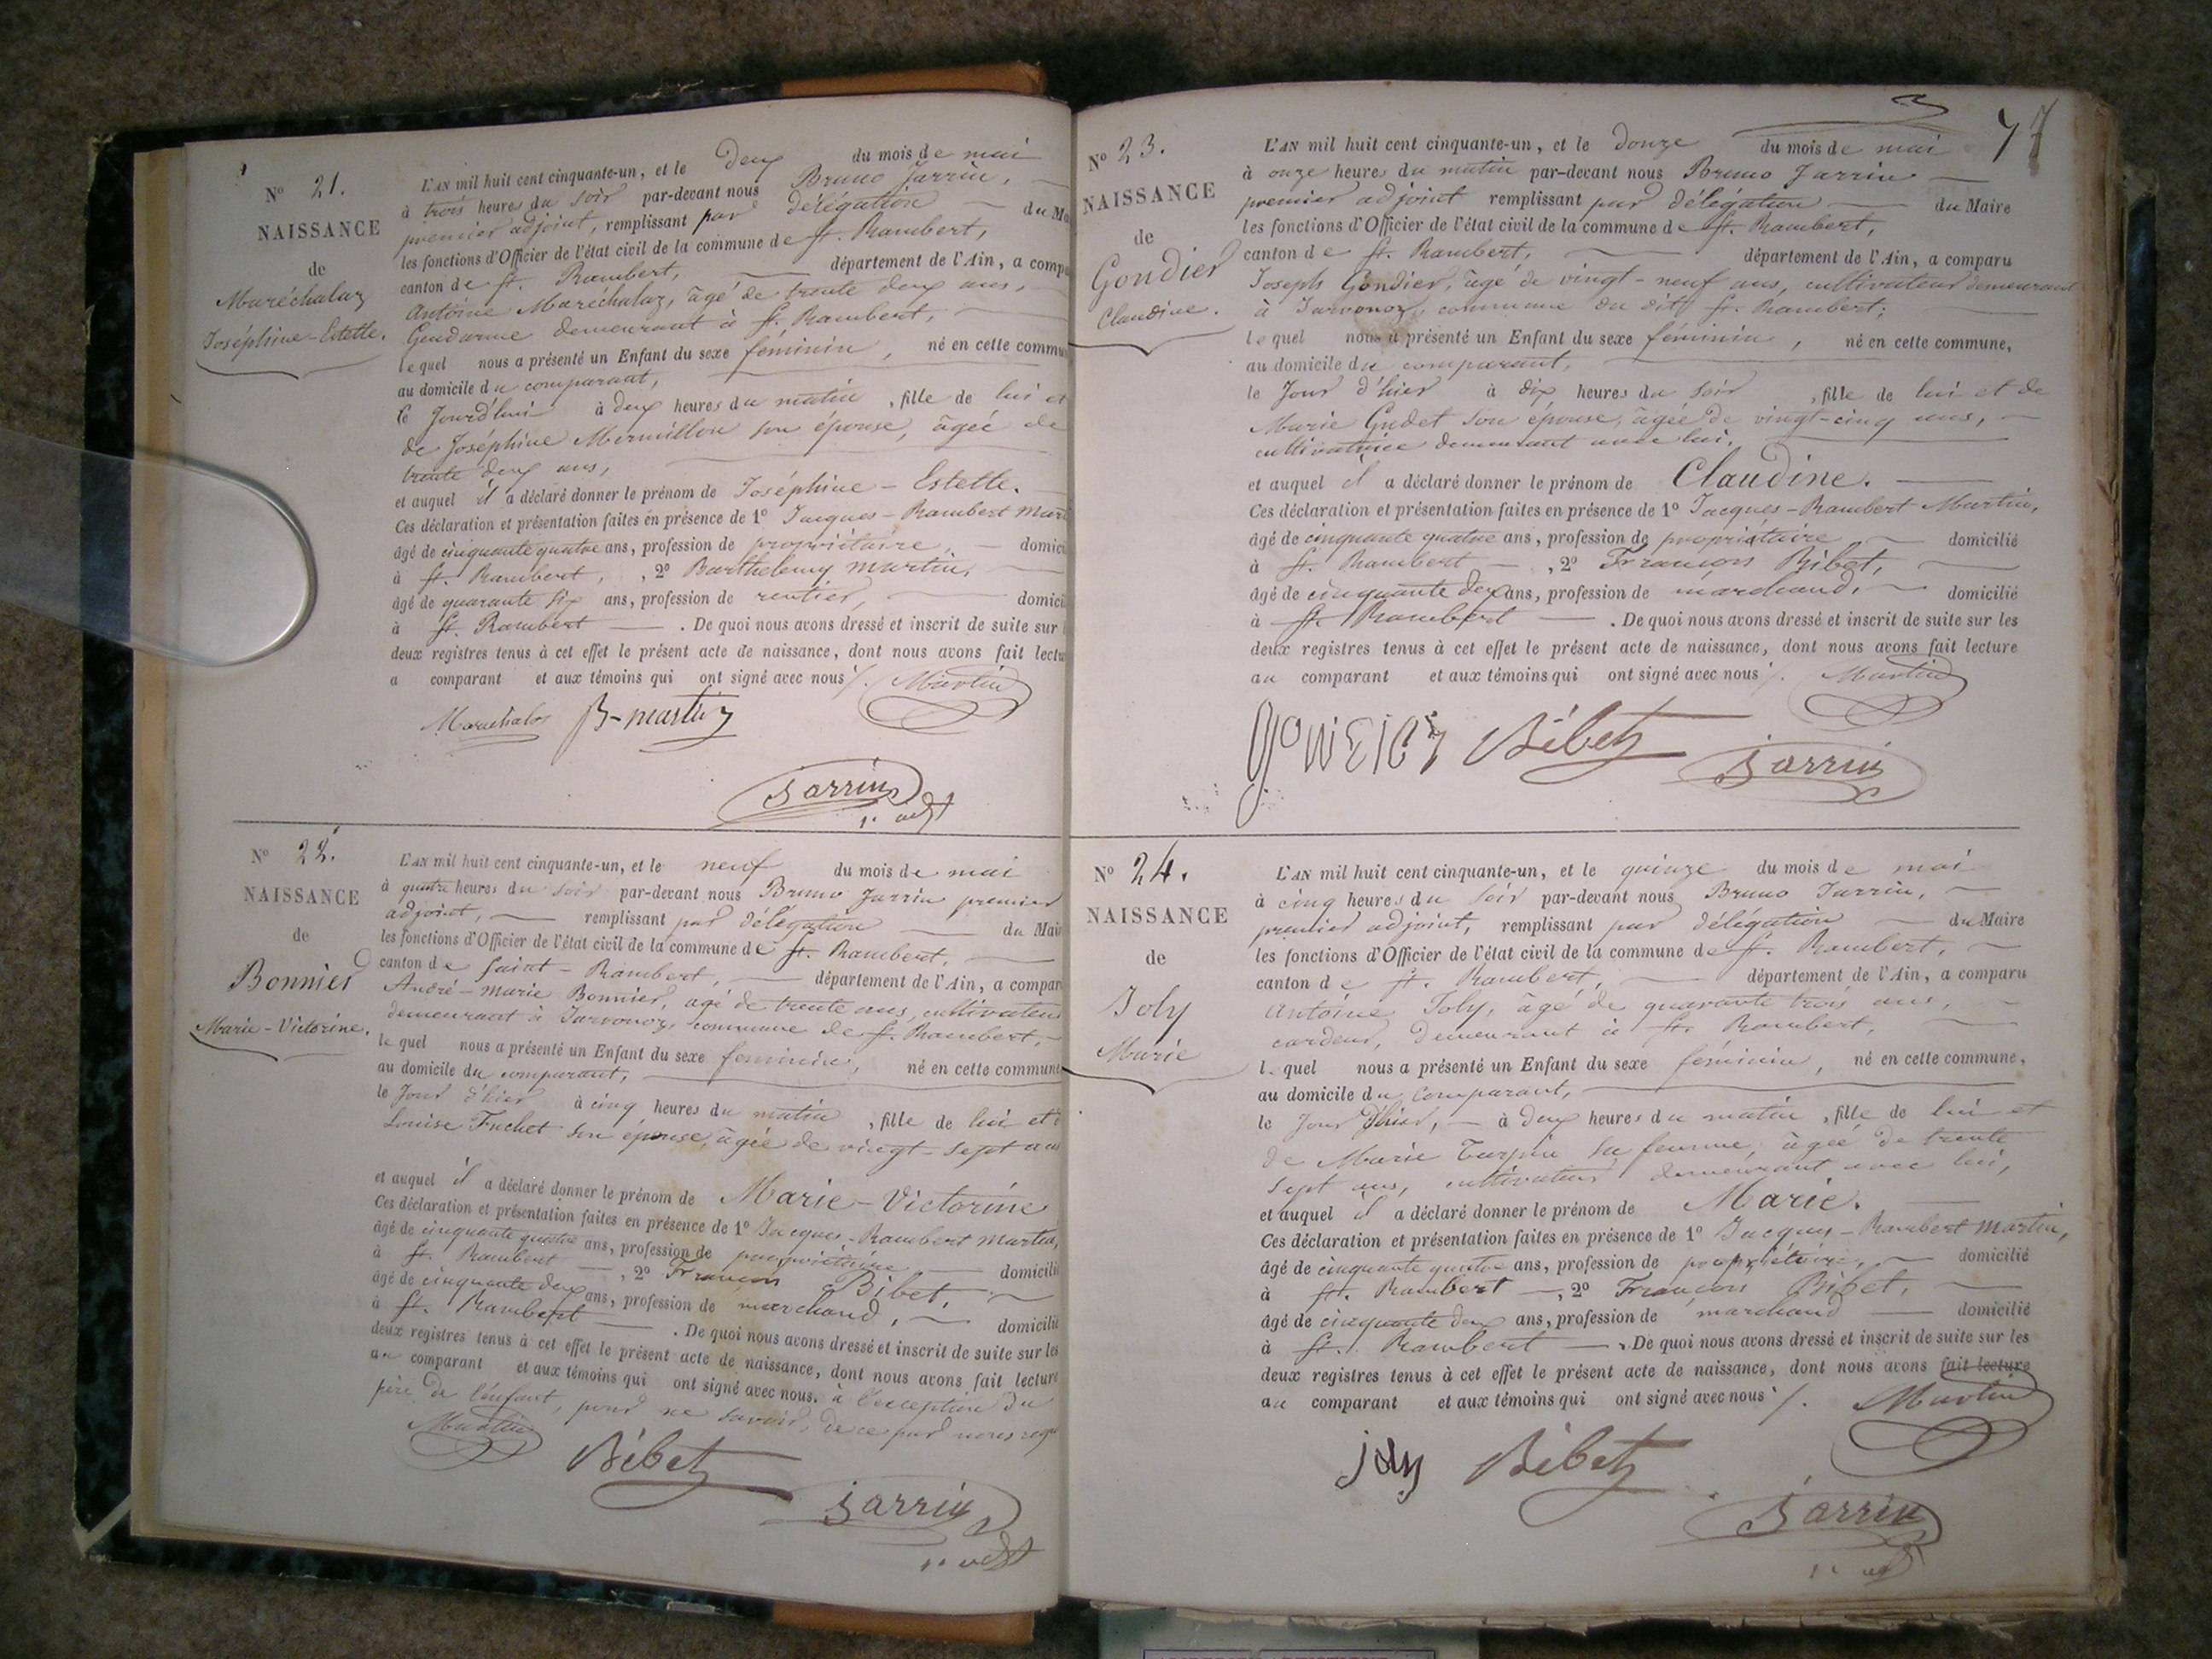 N° 21.
NAISSANCE
de
Maréchalaz
Joséphine-Estelle.
L'AN mil huit cent cinquante-un, et le deux du mois de mai
à trois heures du soir par-devant nous Bruno Jarrin,
premier adjoint, remplissant par délégation du Ma
les fonctions d'Officier de l'état civil de la commune de St. Rambert,
canton de St. Rambert, département de l'Ain, a compa
Antoine Maréchalaz, âgé de trente deux ans,
Gendarme demeurant à St. Rambert,
lequel nous a présenté un Enfant du sexe féminin, né en cette commu
au domicile du comparant,
le Jourd'hui à deux heures du matin, fille de lui et
de Joséphine Mermillon son épouse, âgée de
trente deux ans,
et auquel il a déclaré donner le prénom de Joséphine-Estelle.
Ces déclaration et présentation faites en présence de 1° Jacques-Rambert Mart
âgé de cinquante quatre ans, profession de propriétaire, domici
à St. Rambert, , 2° Barthelemy Martin,
âgé de quarante six ans, profession de rentier, domici
à St. Rambert . De quoi nous avons dressé et inscrit de suite sur
deux registres tenus à cet effet le présent acte de naissance, dont nous avons fait lectu
a comparant et aux témoins qui ont signé avec nous /. Martin
Marechalas B-martin
Jarrin
1er adjt
N° 22.
NAISSANCE
de
Bonnier
Marie-Victorine.
L'AN mil huit cent cinquante-un, et le neuf du mois de mai
à quatre heures du soir par-devant nous Bruno Jarrin premier
adjoint, remplissant par délégation du Mair
les fonctions d'Officier de l'état civil de la commune de St. Rambert,
canton de Saint-Rambert, département de l'Ain, a compar
André-Marie Bonnier, agé de trente ans, cultivateur
demeurant à Javornoz, commune de St. Rambert,
lequel nous a présenté un Enfant du sexe feminin, né en cette commune
au domicile du comparant,
le Jour d'hier à cinq heures du matin, fille de lui et d
Louise Fuchet son épouse, âgée de vingt-sept ans
et auquel il a déclaré donner le prénom de Marie-Victorine
Ces déclaration et présentation faites en présence de 1° Jacques-Rambert Martin,
âgé de cinquante quatre ans, profession de propriétaire domicilié
à St. Rambert , 2° François Bibet,
âgé de cinquante deux ans, profession de marchand, domicilié
à St. Rambert . De quoi nous avons dressé et inscrit de suite sur les
deux registres tenus à cet effet le présent acte de naissance, dont nous avons fait lecture
au comparant et aux témoins qui ont signé avec nous. à l'exception du
père de l'enfant, pour ne savoir, de ce par nous requ
Martin
Bibet
Jarrin
1er adjt
77
N° 23.
NAISSANCE
de
Gondier
Claudine.
L'AN mil huit cent cinquante-un, et le douze du mois de mai
à onze heures du matin par-devant nous Bruno Jarrin
premier adjoint remplissant par délégation du Maire
les fonctions d'Officier de l'état civil de la commune de St. Rambert,
canton de St. Rambert, département de l'Ain, a comparu
Joseph Gondier, âgé de vingt-neuf ans, cultivateur demeurant
à Javornoz, commune du dit St. Rambert;
lequel nous a présenté un Enfant du sexe féminin, né en cette commune,
au domicile du comparant,
le Jour d'hier à dix heures du soir, fille de lui et de
Marie Gudet son épouse, âgée de vingt-cinq ans,
cultivatrice demeurant avec lui,
et auquel il a déclaré donner le prénom de Claudine.
Ces déclaration et présentation faites en présence de 1° Jacques-Rambert Martin,
âgé de cinquante quatre ans, profession de propriétaire domicilié
à St. Rambert , 2° François Bibet,
âgé de cinquante deux ans, profession de marchand, domicilié
à St. Rambert . De quoi nous avons dressé et inscrit de suite sur les
deux registres tenus à cet effet le présent acte de naissance, dont nous avons fait lecture
au comparant et aux témoins qui ont signé avec nous /. Martin
Bibet
Jarrin
N° 24.
NAISSANCE
de
Joly
Marie
L'AN mil huit cent cinquante-un, et le quinze du mois de mai
à cinq heures du soir par-devant nous Bruno Jarrin,
premier adjoint, remplissant par délégation du Maire
les fonctions d'Officier de l'état civil de la commune de St. Rambert,
canton de St. Rambert, département de l'Ain, a comparu
Antoine Joly, âgé de quarante trois ans,
cardeur, demeurant à St. Rambert,
lequel nous a présenté un Enfant du sexe féminin, né en cette commune,
au domicile du comparant,
le Jour d'hier, à deux heures du matin, fille de lui et
de Marie Turpin sa femme, âgée de trente
sept ans, cultivateur demeurant avec lui,
et auquel il a déclaré donner le prénom de Marie.
Ces déclaration et présentation faites en présence de 1° Jacques-Rambert Martin,
âgé de cinquante quatre ans, profession de propriétaire, domicilié
à St. Rambert , 2° François Bibet,
âgé de cinquante deux ans, profession de marchand domicilié
à St. Rambert . De quoi nous avons dressé et inscrit de suite sur les
deux registres tenus à cet effet le présent acte de naissance, dont nous avons fait lecture
au comparant et aux témoins qui ont signé avec nous /. Martin
joly Bibet
Jarrin
1er adjt